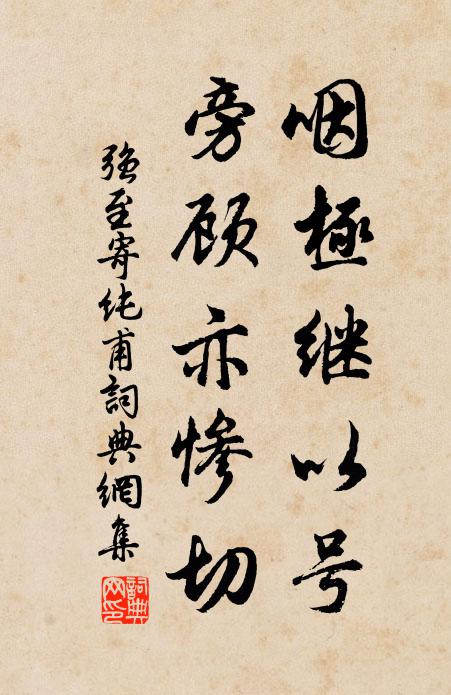 咽極继以号
旁顾亦惨切
强至寄纯甫詞典網集
詞典网印